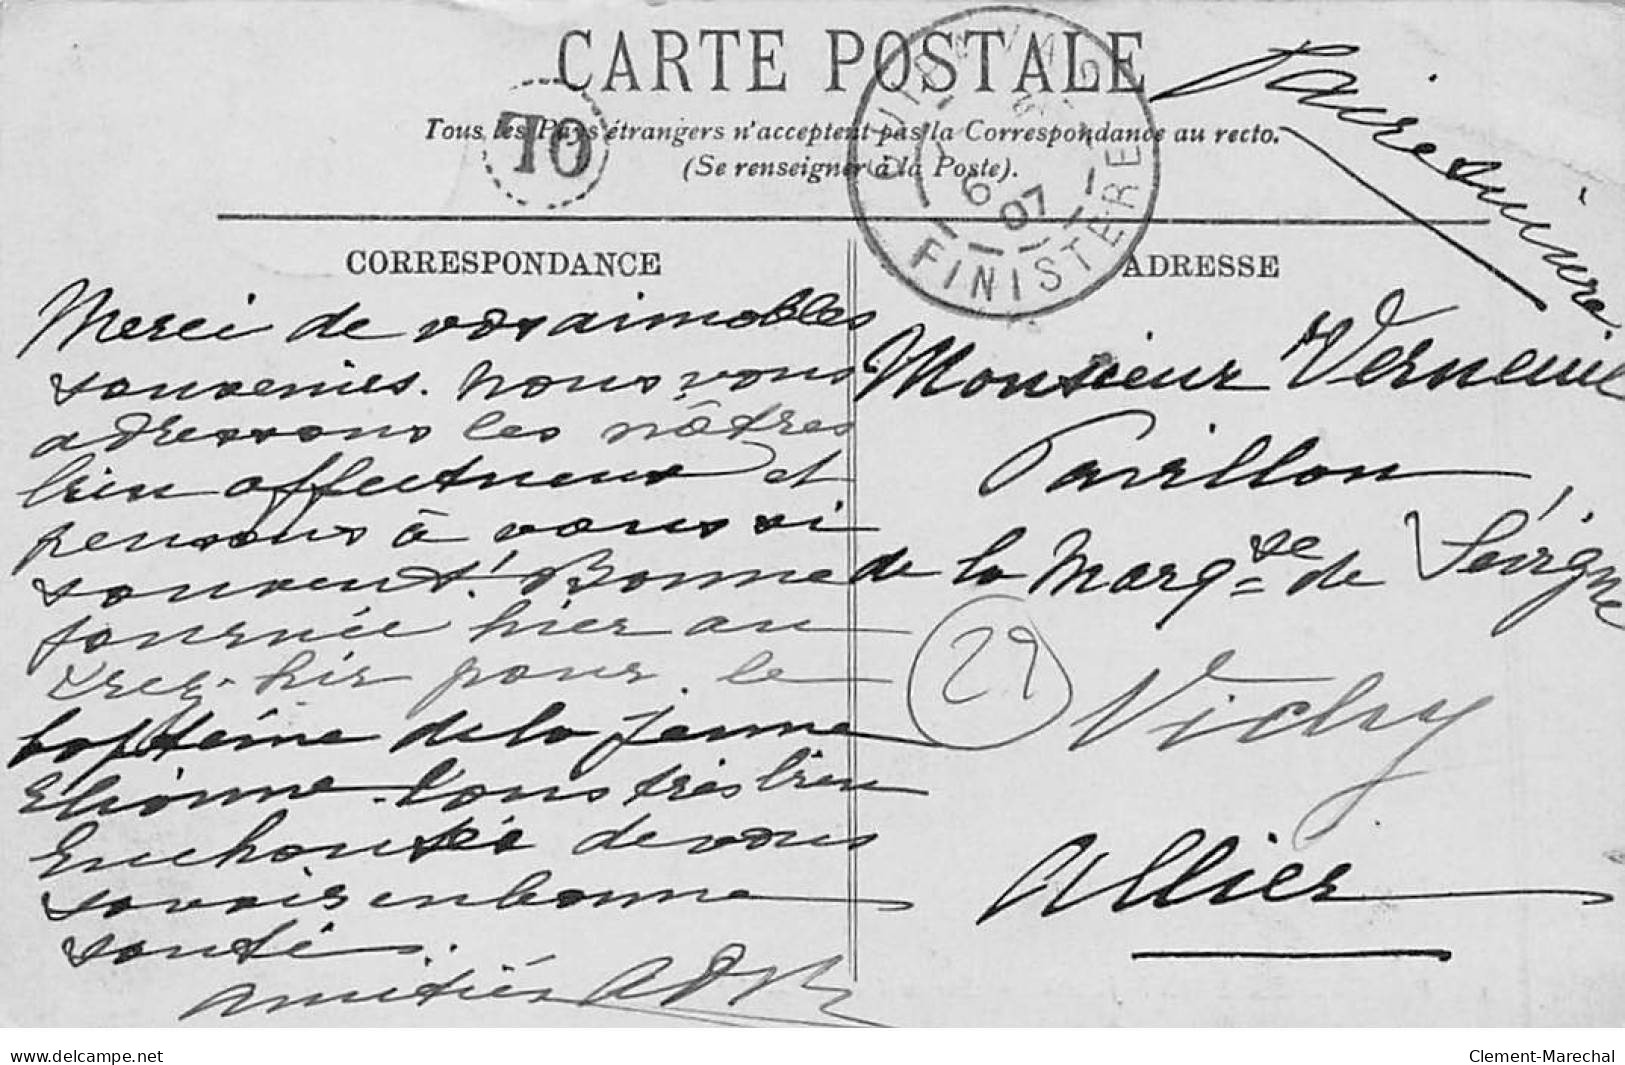 CARTE POSTALE
Tous les Pays étrangers n'acceptent pas la Correspondance au recto.
(Se renseigner à la Poste).
TO
6
07
FINISTERE
faire suivre
CORRESPONDANCE
Merci de vos aimables
souvenirs. Nous vous
adressons les nôtres
bien affectueux et
pensons à vous si
souvent! Bonne
journée hier au
Trez-hir pour le
baptême de la jeune
Tous très bien
Enchantés de vous
savoir en bonne
santé.
Amitiés
ADRESSE
Monsieur Verneuil
Pavillon
de la Marqse de Sévigné
Vichy
Allier
29
www.delcampe.net
Clement-Marechal